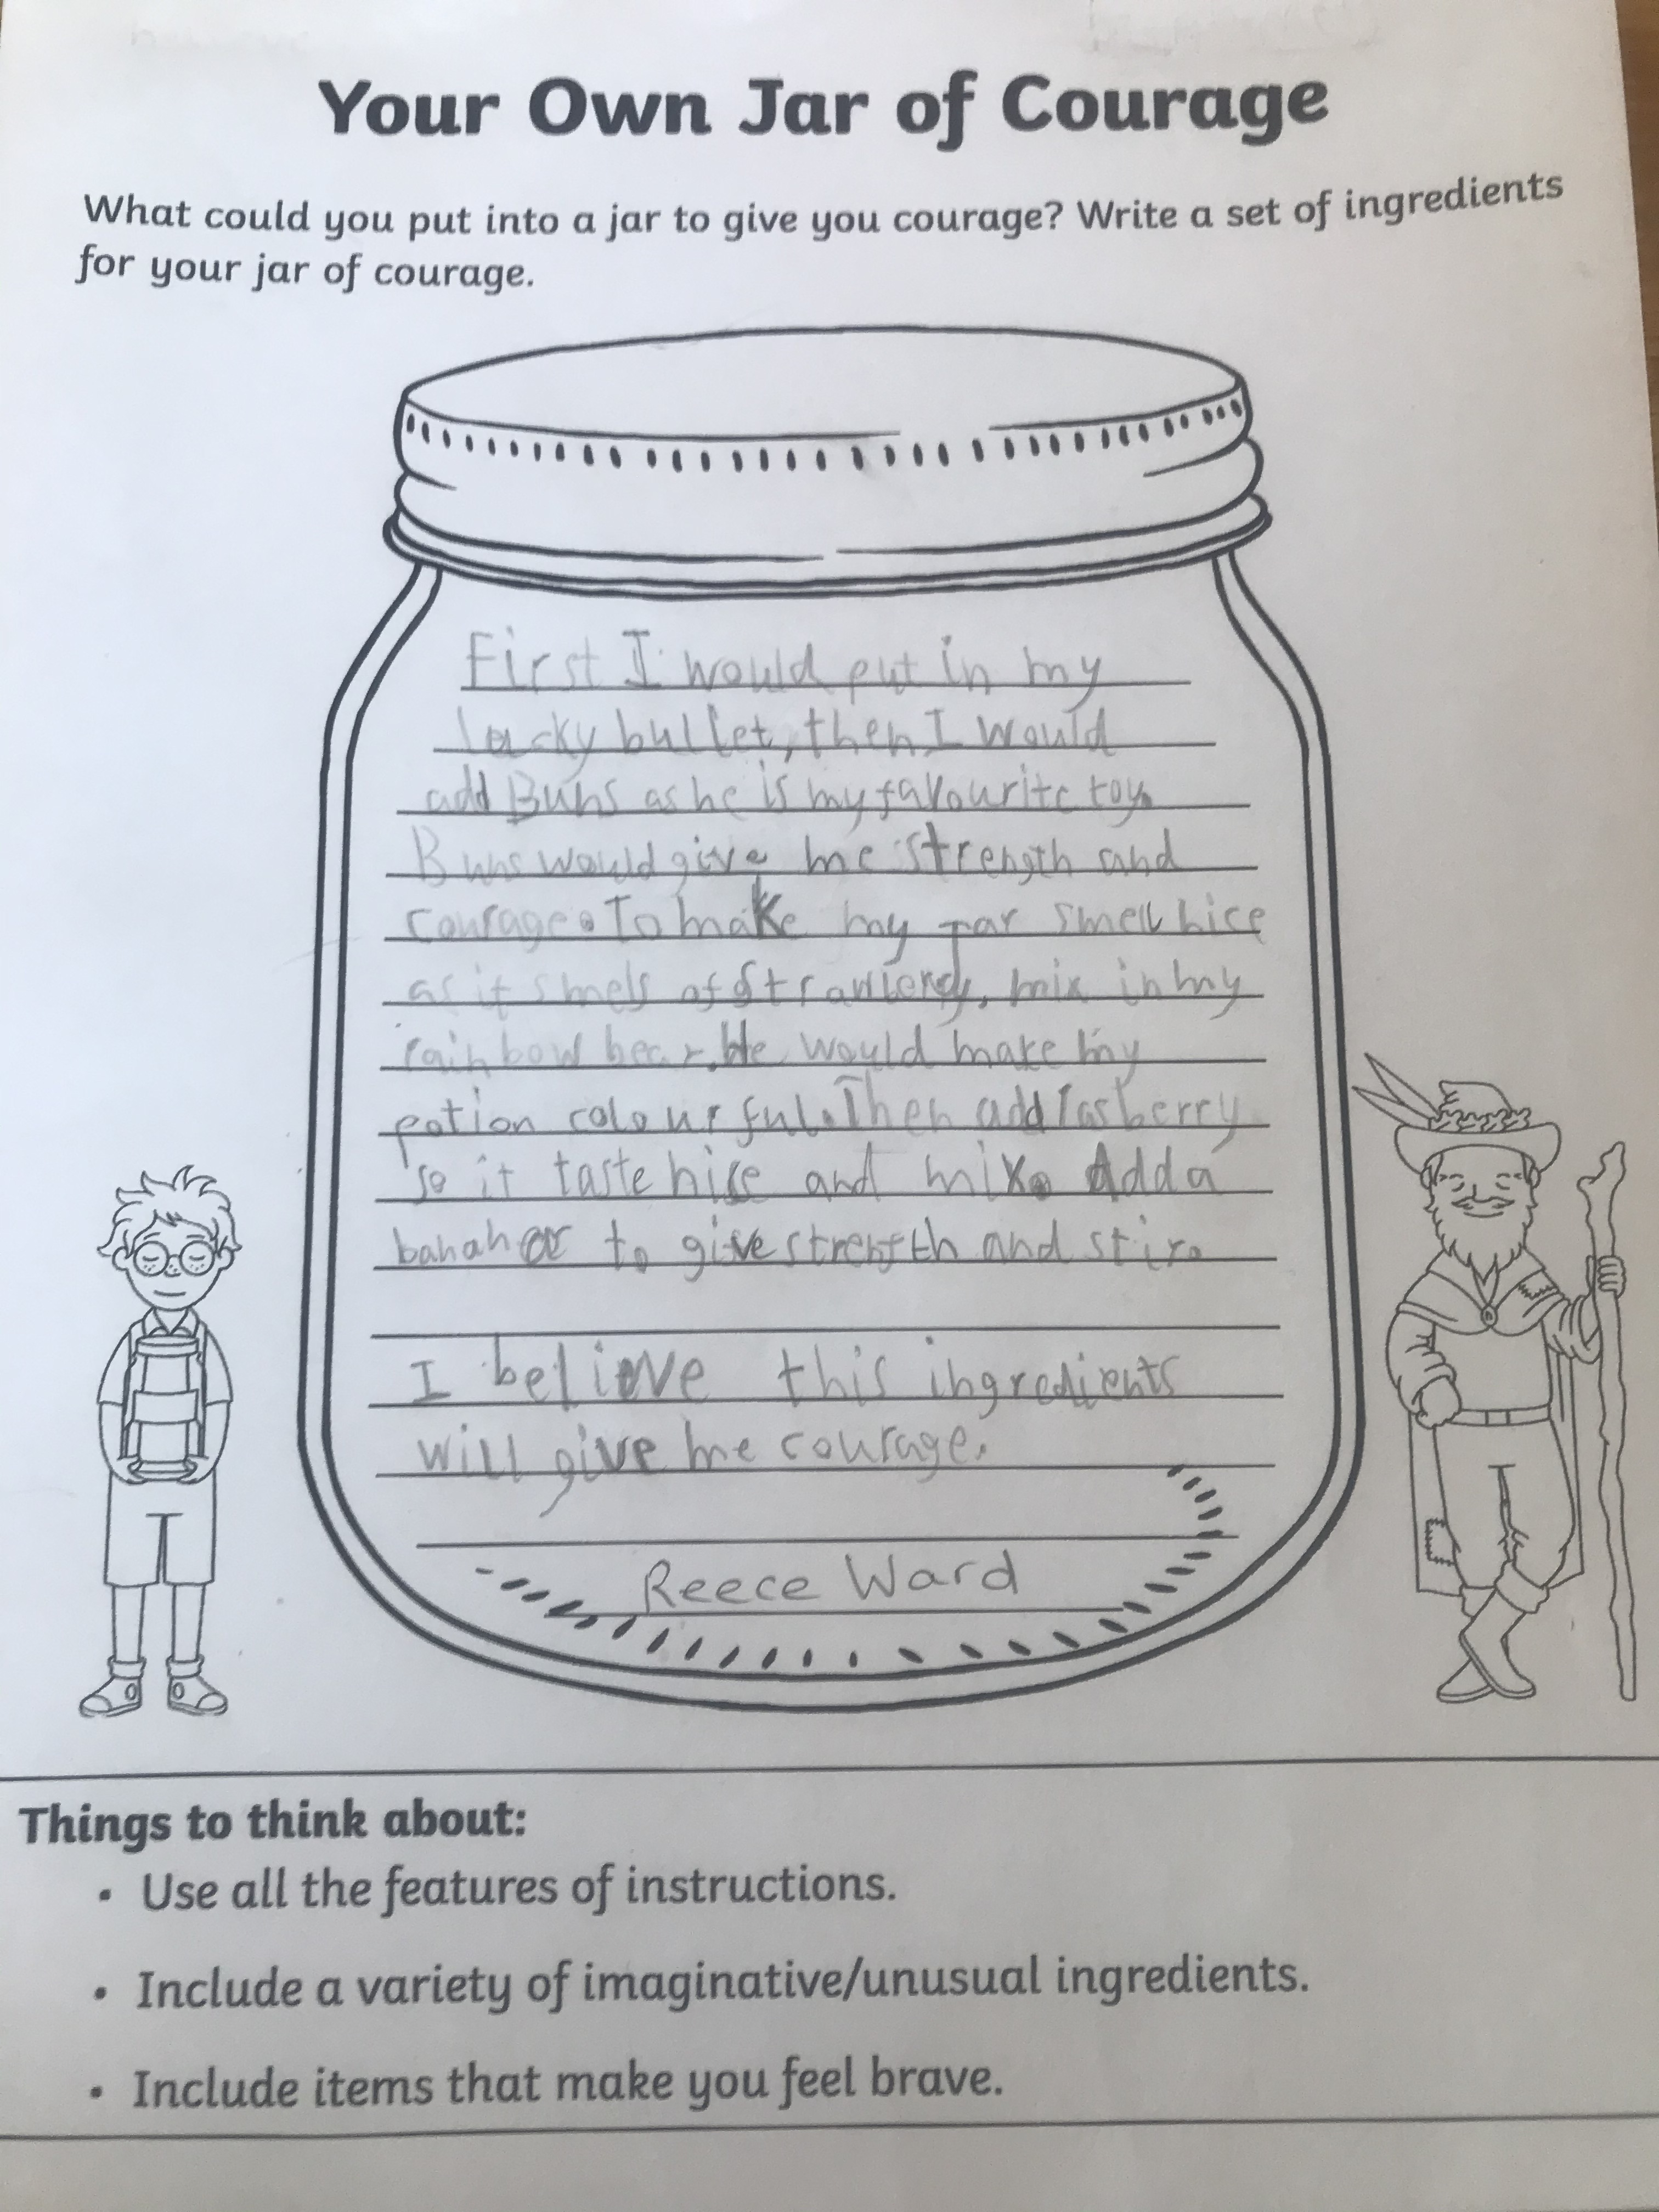 Your Own Jar of Courage
What could you put into a jar to give you courage? Write a set of ingredients
for your jar of courage.
First I would put in my
lucky bullet, then I would
add Buns as he is my favourite toy.
Buns would give me strength and
courage. To make my jar smell nice
as it smells of strawberry, mix in my
rainbow bear. He would make my
potion colourful. Then add rasberry
so it taste nice and mix. Add a
bananar to give strength and stir.
I believe this ingredients
will give me courage.
Reece Ward
Things to think about:
• Use all the features of instructions.
• Include a variety of imaginative/unusual ingredients.
• Include items that make you feel brave.